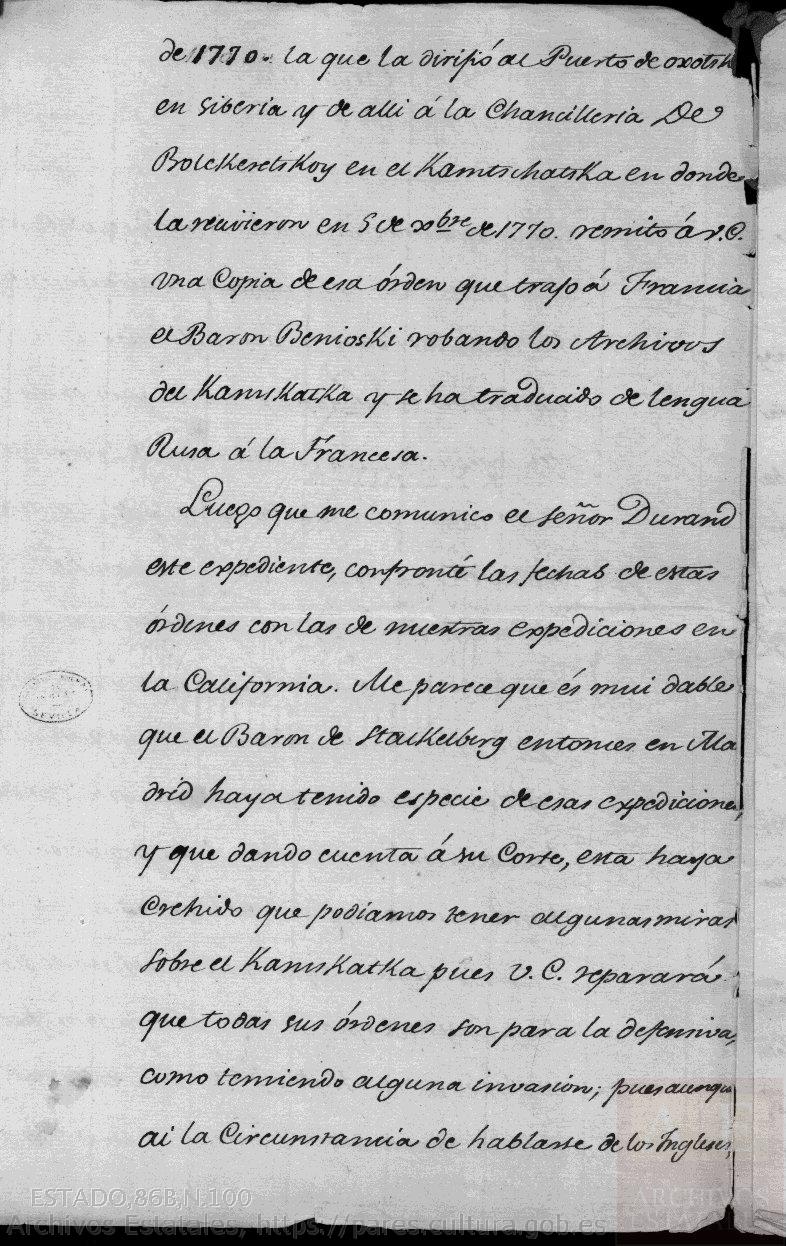 de 1770. la que la dirijió al Puerto de oxotsk
en Siberia y de alli á la Chancilleria De
Bolckeretskoy en el Kamtschatska en donde
la recivieron en 5 de xbre de 1770. remito á V.C.
una Copia de esa órden que trajo á Francia
el Baron Benioski robando los Archivos
del Kamskatka y se ha traducido de lengua
Rusa á la Francesa.
Luego que me comunico el señor Durand
este expediente, confronté las fechas de estas
órdenes con las de nuestras expediciones en
la California. Me parece que és mui dable
que el Baron de Stackelberg entonces en Ma
drid haya tenido especie de esas expediciones,
y que dando cuenta á su Corte, esta haya
Crehido que podiamos tener algunas miras
sobre el Kamskatka pues V.C. reparará
que todas sus órdenes son para la defensiva,
como temiendo alguna invasión; pues aunque
ai la Circunstancia de hablarse de los Ingleses,
SEVILLA
ESTADO,86B,N.100
Archivos Estatales, https://pares.cultura.gob.es
ARCHIVOS
ESTATALES